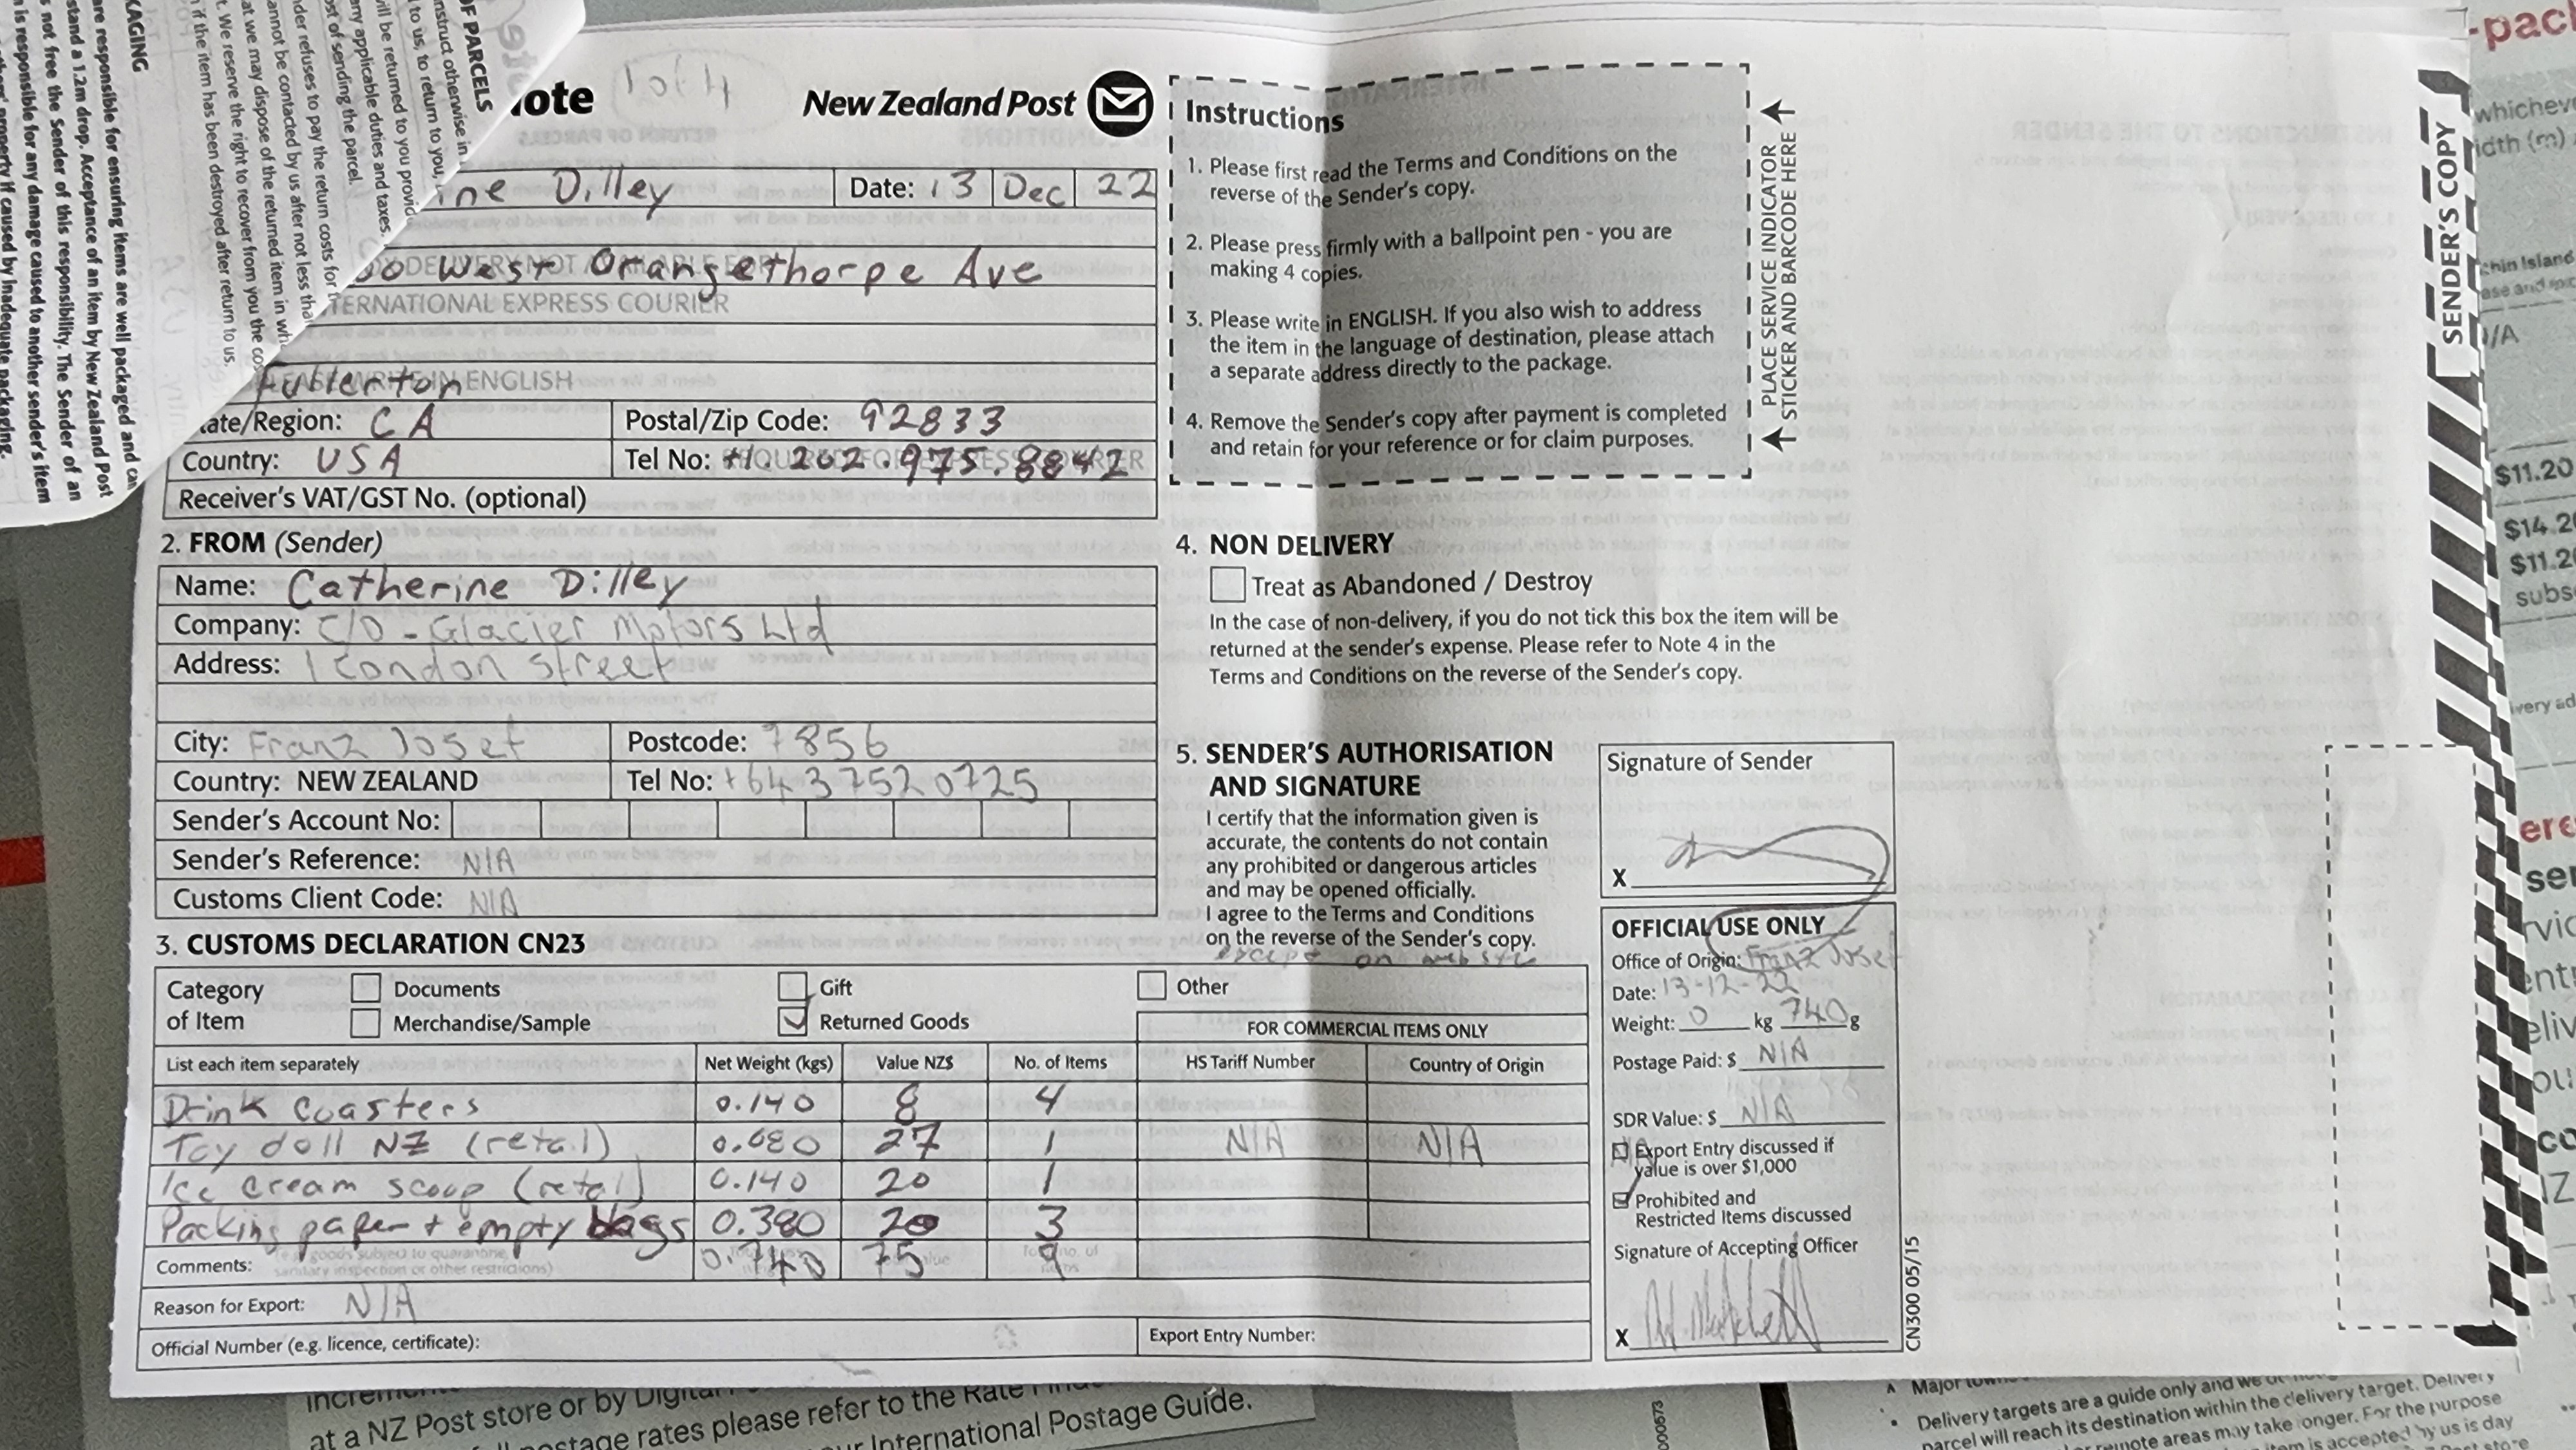 ote 1 of 4 New Zealand Post
ine Dilley Date: 13 Dec 22
00 West Orangethorpe Ave
DELIVERY NOT AVAILABLE FOR
TERNATIONAL EXPRESS COURIER
Fullerton
EASE WRITE IN ENGLISH
tate/Region: CA Postal/Zip Code: 92833
Country: USA Tel No: +1. 202.975.8842
REQUIRED FOR EXPRESS COURIER
Receiver's VAT/GST No. (optional)
2. FROM (Sender)
Name: Catherine Dilley
Company: C/O - Glacier Motors Ltd
Address: 1 Condon Street
City: Franz Josef Postcode: 7856
Country: NEW ZEALAND Tel No: +64 3 7520725
Sender's Account No:
Sender's Reference: N/A
Customs Client Code: N/A
3. CUSTOMS DECLARATION CN23
Category of Item
Documents
Merchandise/Sample
Gift
Returned Goods
Other
FOR COMMERCIAL ITEMS ONLY
List each item separately Net Weight (kgs) Value NZ$ No. of Items HS Tariff Number Country of Origin
Drink Coasters 0.140 8 4
Toy doll NZ (retail) 0.080 27 1 N/A N/A
Ice cream scoop (retail) 0.140 20 1
Packing paper + empty bags 0.380 20 3
Comments: (e.g. goods subject to quarantine, 0.740 75 9
sanitary inspection or other restrictions)
Reason for Export: N/A
Official Number (e.g. licence, certificate): Export Entry Number:
Instructions
1. Please first read the Terms and Conditions on the
reverse of the Sender's copy.
2. Please press firmly with a ballpoint pen - you are
making 4 copies.
3. Please write in ENGLISH. If you also wish to address
the item in the language of destination, please attach
a separate address directly to the package.
4. Remove the Sender's copy after payment is completed
and retain for your reference or for claim purposes.
PLACE SERVICE INDICATOR
STICKER AND BARCODE HERE
4. NON DELIVERY
Treat as Abandoned / Destroy
In the case of non-delivery, if you do not tick this box the item will be
returned at the sender's expense. Please refer to Note 4 in the
Terms and Conditions on the reverse of the Sender's copy.
5. SENDER'S AUTHORISATION
AND SIGNATURE
I certify that the information given is
accurate, the contents do not contain
any prohibited or dangerous articles
and may be opened officially.
I agree to the Terms and Conditions
on the reverse of the Sender's copy.
except on website
Signature of Sender
X
OFFICIAL USE ONLY
Office of Origin: Franz Josef
Date: 13-12-22
Weight: 0 kg 740 g
Postage Paid: $ N/A
SDR Value: $ N/A
N/A Export Entry discussed if
value is over $1,000
Prohibited and
Restricted Items discussed
Signature of Accepting Officer
X
CN300 05/15
SENDER'S COPY
OF PARCELS
nstruct otherwise in
to us, to return to you,
will be returned to you provid
any applicable duties and taxes.
ost of sending the parcel.
nder refuses to pay the return costs for
annot be contacted by us after not less tha
at we may dispose of the returned item in wh
t. We reserve the right to recover from you the cos
if the item has been destroyed after return to us.
KAGING
are responsible for ensuring items are well packaged and can
stand a 1.2m drop. Acceptance of an item by New Zealand Post
s not free the Sender of this responsibility. The Sender of an
is responsible for any damage caused to another sender's item
property if caused by inadequate packaging.
-pac
whichev
idth (m)
$11.20
$14.2
$11.2
subs
very ad
at a NZ Post store or by Digital
postage rates please refer to the Rate
International Postage Guide.
Major
Delivery targets are a guide only and we
parcel will reach its destination within the delivery target. Delivery
remote areas may take longer. For the purpose
item is accepted by us is day